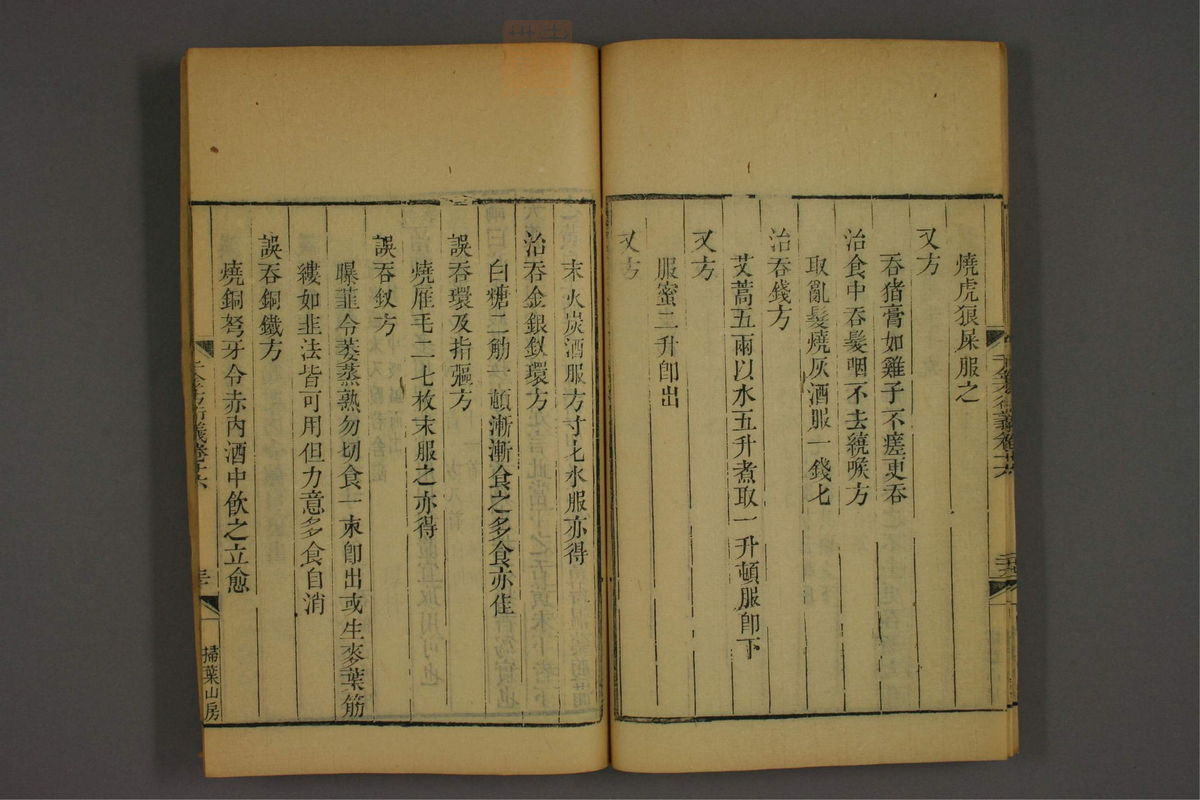 燒虎狼屎服之
又方
吞猪膏如雞子不瘥更吞
治食中吞髮咽不去繞喉方
取亂髮燒灰酒服一錢匕
治吞錢方
艾蒿五兩以水五升煮取一升頓服卽下
又方
服蜜二升卽出
又方
末火炭酒服方寸匕水服亦得
治吞金銀釵環方
白糖二觔一頓漸漸食之多食亦佳
誤吞環及指彄方
燒雁毛二七枚末服之亦得
誤吞釵方
曝韮令萎蒸熟勿切食一束卽出或生麥葉筋
縷如韭法皆可用但力意多食自消
誤吞銅鐵方
燒銅弩牙令赤內酒中飲之立愈
千金方衍義卷十六
三十
掃葉山房